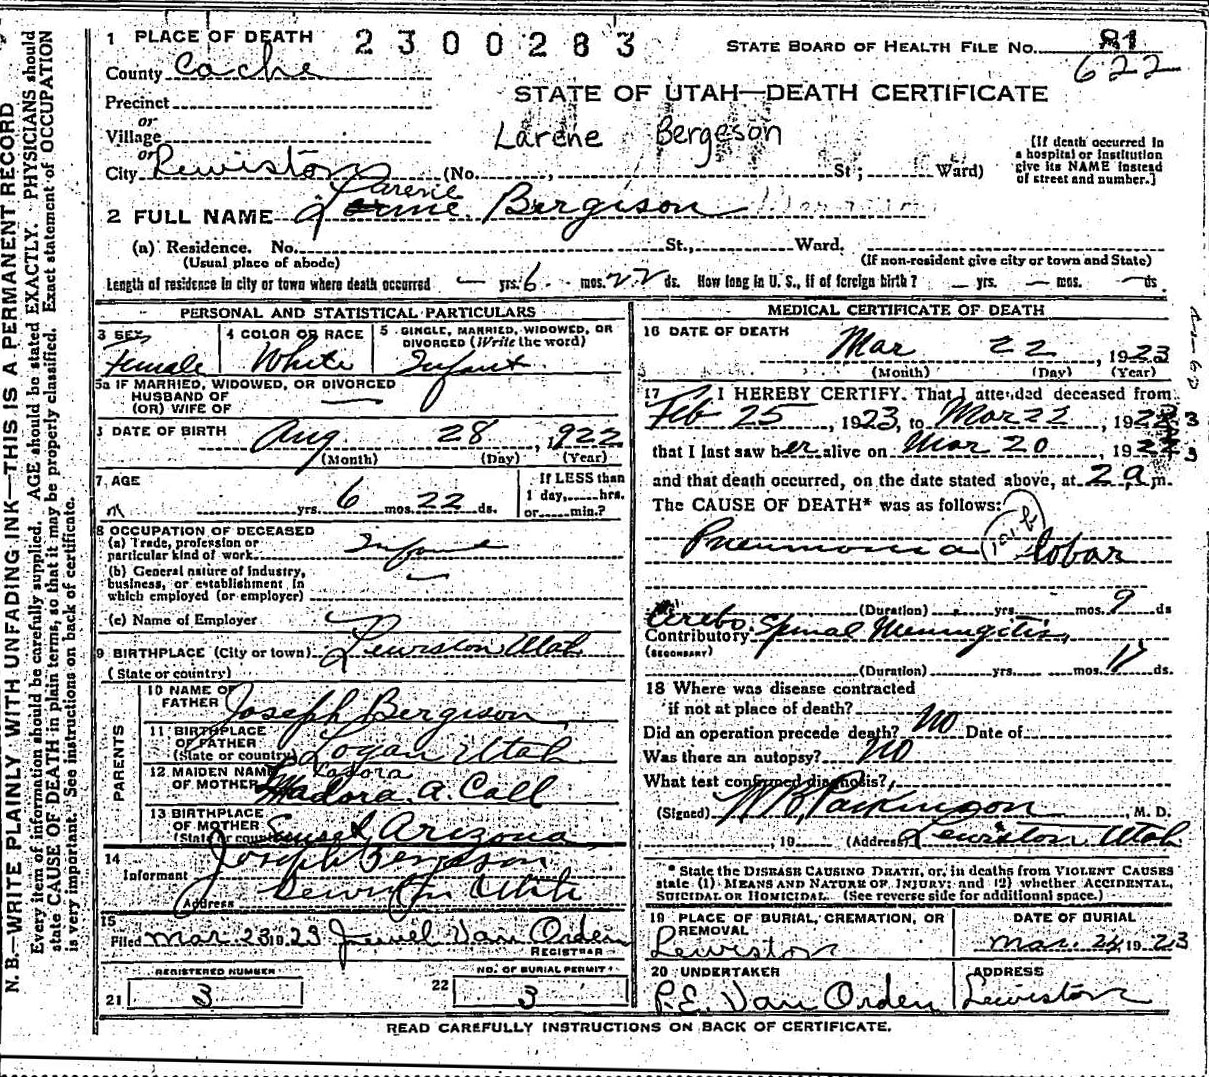 N. B.—WRITE PLAINLY WITH UNFADING INK—THIS IS A PERMANENT RECORD
Every item of information should be carefully supplied. AGE should be stated EXACTLY. PHYSICIANS should
state CAUSE OF DEATH in plain terms, so that it may be properly classified. Exact statement of OCCUPATION
is very important. See instructions on back of certificate.
1 PLACE OF DEATH 2300283 STATE BOARD OF HEALTH FILE No. 81
County Cache 622
Precinct STATE OF UTAH—DEATH CERTIFICATE
or
Village Larene Bergeson
or
City Lewiston (No. , St; Ward)
[If death occurred in
a hospital or institution
give its NAME instead
of street and number.]
Larene
2 FULL NAME Bergison
(a) Residence. No. St., Ward.
(Usual place of abode) (If non-resident give city or town and State)
Length of residence in city or town where death occurred — yrs. 6 mos. 22 ds. How long in U. S., if of foreign birth? — yrs. — mos. — ds.
PERSONAL AND STATISTICAL PARTICULARS
3 SEX 4 COLOR OR RACE 5 SINGLE, MARRIED, WIDOWED, OR
DIVORCED (Write the word)
Female White Infant
5a IF MARRIED, WIDOWED, OR DIVORCED
HUSBAND OF
(OR) WIFE OF —
DATE OF BIRTH Aug 28, 1922
(Month) (Day) (Year)
7 AGE yrs. 6 mos. 22 ds.
If LESS than
1 day, hrs.
or min.?
8 OCCUPATION OF DECEASED
(a) Trade, profession or
particular kind of work Infant
(b) General nature of industry,
business, or establishment in
which employed (or employer) —
(c) Name of Employer
9 BIRTHPLACE (City or town) Lewiston Utah
(State or country)
PARENTS
10 NAME OF
FATHER Joseph Bergison
11 BIRTHPLACE
OF FATHER
(State or country) Logan Utah
12 MAIDEN NAME
OF MOTHER Madora A. Call
13 BIRTHPLACE
OF MOTHER
(State or country) Sunset Arizona
14
Informant Joseph Bergeson
Address Lewiston Utah
15
Filed Mar. 23 1923 Jewel Van Orden
REGISTRAR
REGISTERED NUMBER NO. OF BURIAL PERMIT
21 3 22 3
MEDICAL CERTIFICATE OF DEATH
16 DATE OF DEATH
Mar 22, 1923
(Month) (Day) (Year)
17 I HEREBY CERTIFY. That I attended deceased from
Feb 25, 1923, to Mar 22, 1923
that I last saw her alive on Mar 20, 1923
and that death occurred, on the date stated above, at 2 a m.
The CAUSE OF DEATH* was as follows:
Pneumonia lobar
(Duration) yrs. mos. 9 ds
Cerebo
Contributory Spinal Meningitis,
(SECONDARY)
(Duration) yrs. mos. 17 ds.
18 Where was disease contracted
if not at place of death?
Did an operation precede death? No Date of
Was there an autopsy? No
What test confirmed diagnosis?
(Signed) Parkinson, M. D.
, 19 (Address) Lewiston Utah
* State the DISEASE CAUSING DEATH, or, in deaths from VIOLENT CAUSES
state (1) MEANS AND NATURE OF INJURY; and (2) whether ACCIDENTAL,
SUICIDAL OR HOMICIDAL. (See reverse side for additional space.)
19 PLACE OF BURIAL, CREMATION, OR
REMOVAL
Lewiston
DATE OF BURIAL
Mar. 24 1923
20 UNDERTAKER
P.E. Van Orden
ADDRESS
Lewiston
READ CAREFULLY INSTRUCTIONS ON BACK OF CERTIFICATE.